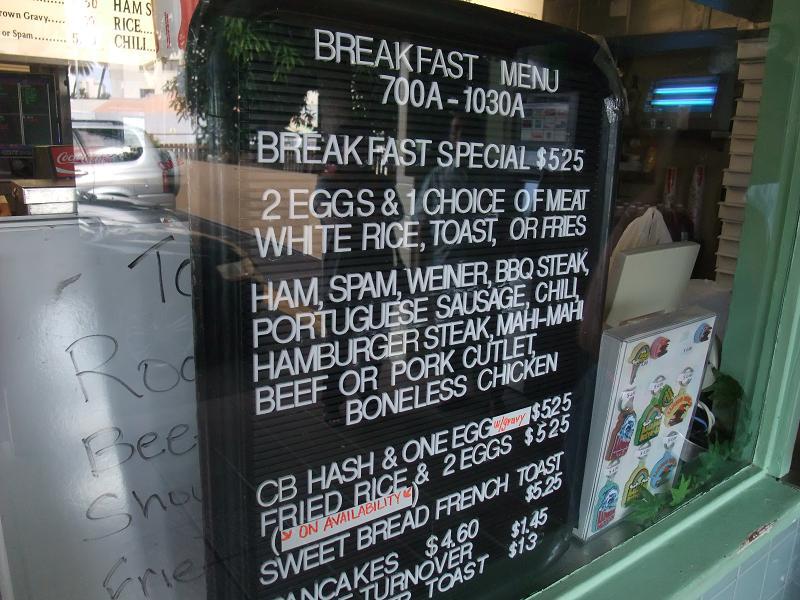 HAMS
rown Gravy
RICE
or Spam
CHILL
Coca-Cola
BREAKFAST MENU
700A-1030A
BREAKFAST SPECIAL $5.25
2 EGGS & 1 CHOICE OF MEAT
WHITE RICE, TOAST, OR FRIES
HAM, SPAM, WEINER, BBQ STEAK,
PORTUGUESE SAUSAGE, CHILI,
HAMBURGER STEAK, MAHI-MAHI
BEEF OR PORK CUTLET,
BONELESS CHICKEN
CB HASH & ONE EGG w/gravy $5.25
FRIED RICE & 2 EGGS $5.25
(ON AVAILABILITY)
SWEET BREAD FRENCH TOAST
$5.25
PANCAKES $4.60
TURNOVER $1.45
TOAST $13
To
Roa
Bee
Sho
Frie